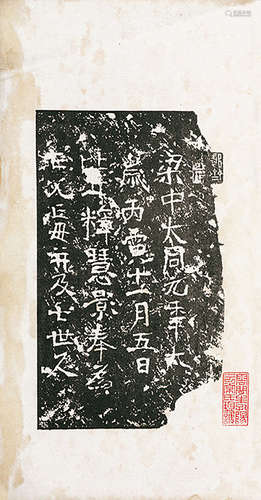 梁中大同元年太
歲丙寅十一月五日
比丘釋慧影奉為
亡父母并及七世久